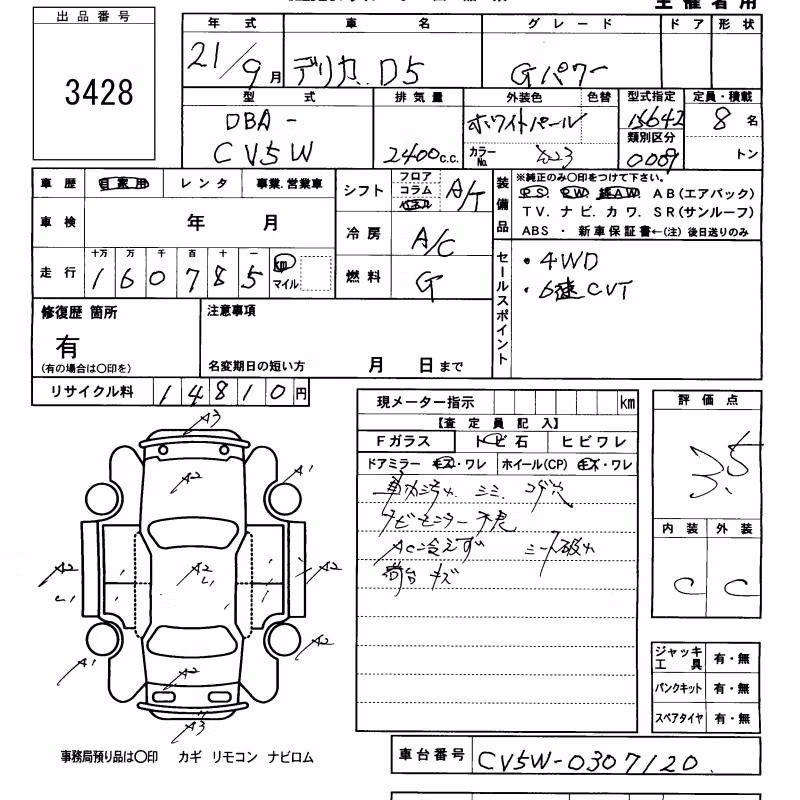 主催者用
出品番号
3428
年式 車名 グレード ドア 形状
21/9月 デリカ D5 Gパワー
型式 排気量 外装色 色替 型式指定 定員・積載
DBA-
CV5W
2400c.c.
ホワイトパール
カラーNo.
15642
類別区分
0009
8名
トン
車歴 自家用 レンタ 事業.営業車
シフト フロア コラム A/T
装備品
※純正のみ〇印をつけて下さい。
PS. PW. 純AW. AB(エアバック)
TV. ナビ. カワ. SR(サンルーフ)
ABS ・ 新車保証書←(注) 後日送りのみ
車検 年 月
冷房 A/C
走行 十万 万 千 百 十 一
160785 km マイル
燃料 G
セールスポイント
・4WD
・6速CVT
修復歴 箇所
有
(有の場合は〇印を)
注意事項
名変期日の短い方 月 日まで
リサイクル料 14810円
現メーター指示 km
【査定員記入】
Fガラス トビ石 ヒビワレ
ドアミラー キズ・ワレ ホイール(CP) キズ・ワレ
シミ コゲ穴
ナビモニター不良
AC冷えず シート破れ
荷台 キズ
評価点
3.5
内装 外装
C C
A3
A2 A1
A2 A2 A2
L1 L1
A2 A2
A1
A3
ジャッキ工具 有・無
パンクキット 有・無
スペアタイヤ 有・無
事務局預り品は〇印 カギ リモコン ナビロム
車台番号 CV5W-0307120